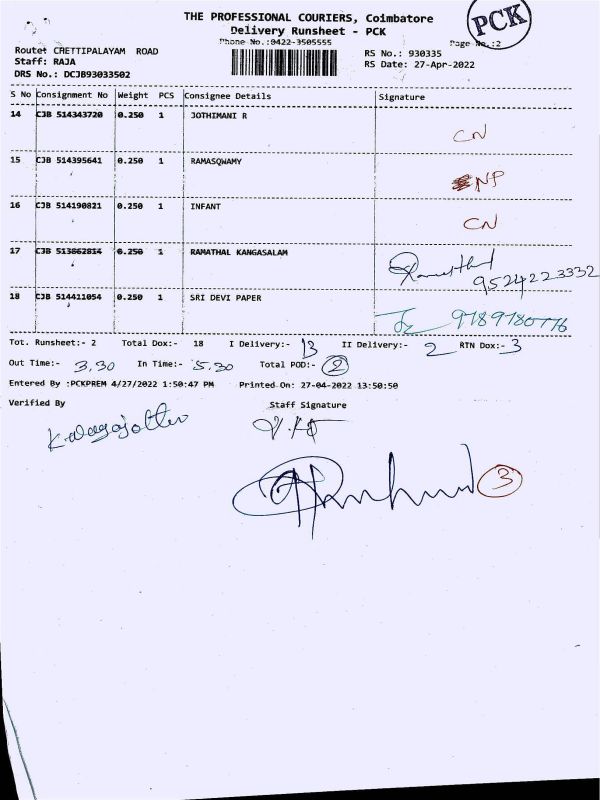 THE PROFESSIONAL COURIERS, Coimbatore
Delivery Runsheet - PCK
Phone No.:0422-3505555
PCK
Page No.:2
Route: CHETTIPALAYAM ROAD
RS No.: 930335
Staff: RAJA
RS Date: 27-Apr-2022
DRS No.: DCJB93033502
S No Consignment No Weight PCS Consignee Details Signature
14 CJB 514343720 0.250 1 JOTHIMANI R CN
15 CJB 514395641 0.250 1 RAMASQWAMY NP
16 CJB 514190821 0.250 1 INFANT CN
17 CJB 513862814 0.250 1 RAMATHAL KANGASALAM
9524223332
18 CJB 514411054 0.250 1 SRI DEVI PAPER 9789780776
Tot. Runsheet:- 2 Total Dox:- 18 I Delivery:- 13 II Delivery:- 2 RTN Dox:- 3
Out Time:- 3.30 In Time:- 5.30 Total POD:- 2
Entered By :PCKPREM 4/27/2022 1:50:47 PM Printed On: 27-04-2022 13:50:50
Verified By Staff Signature
3